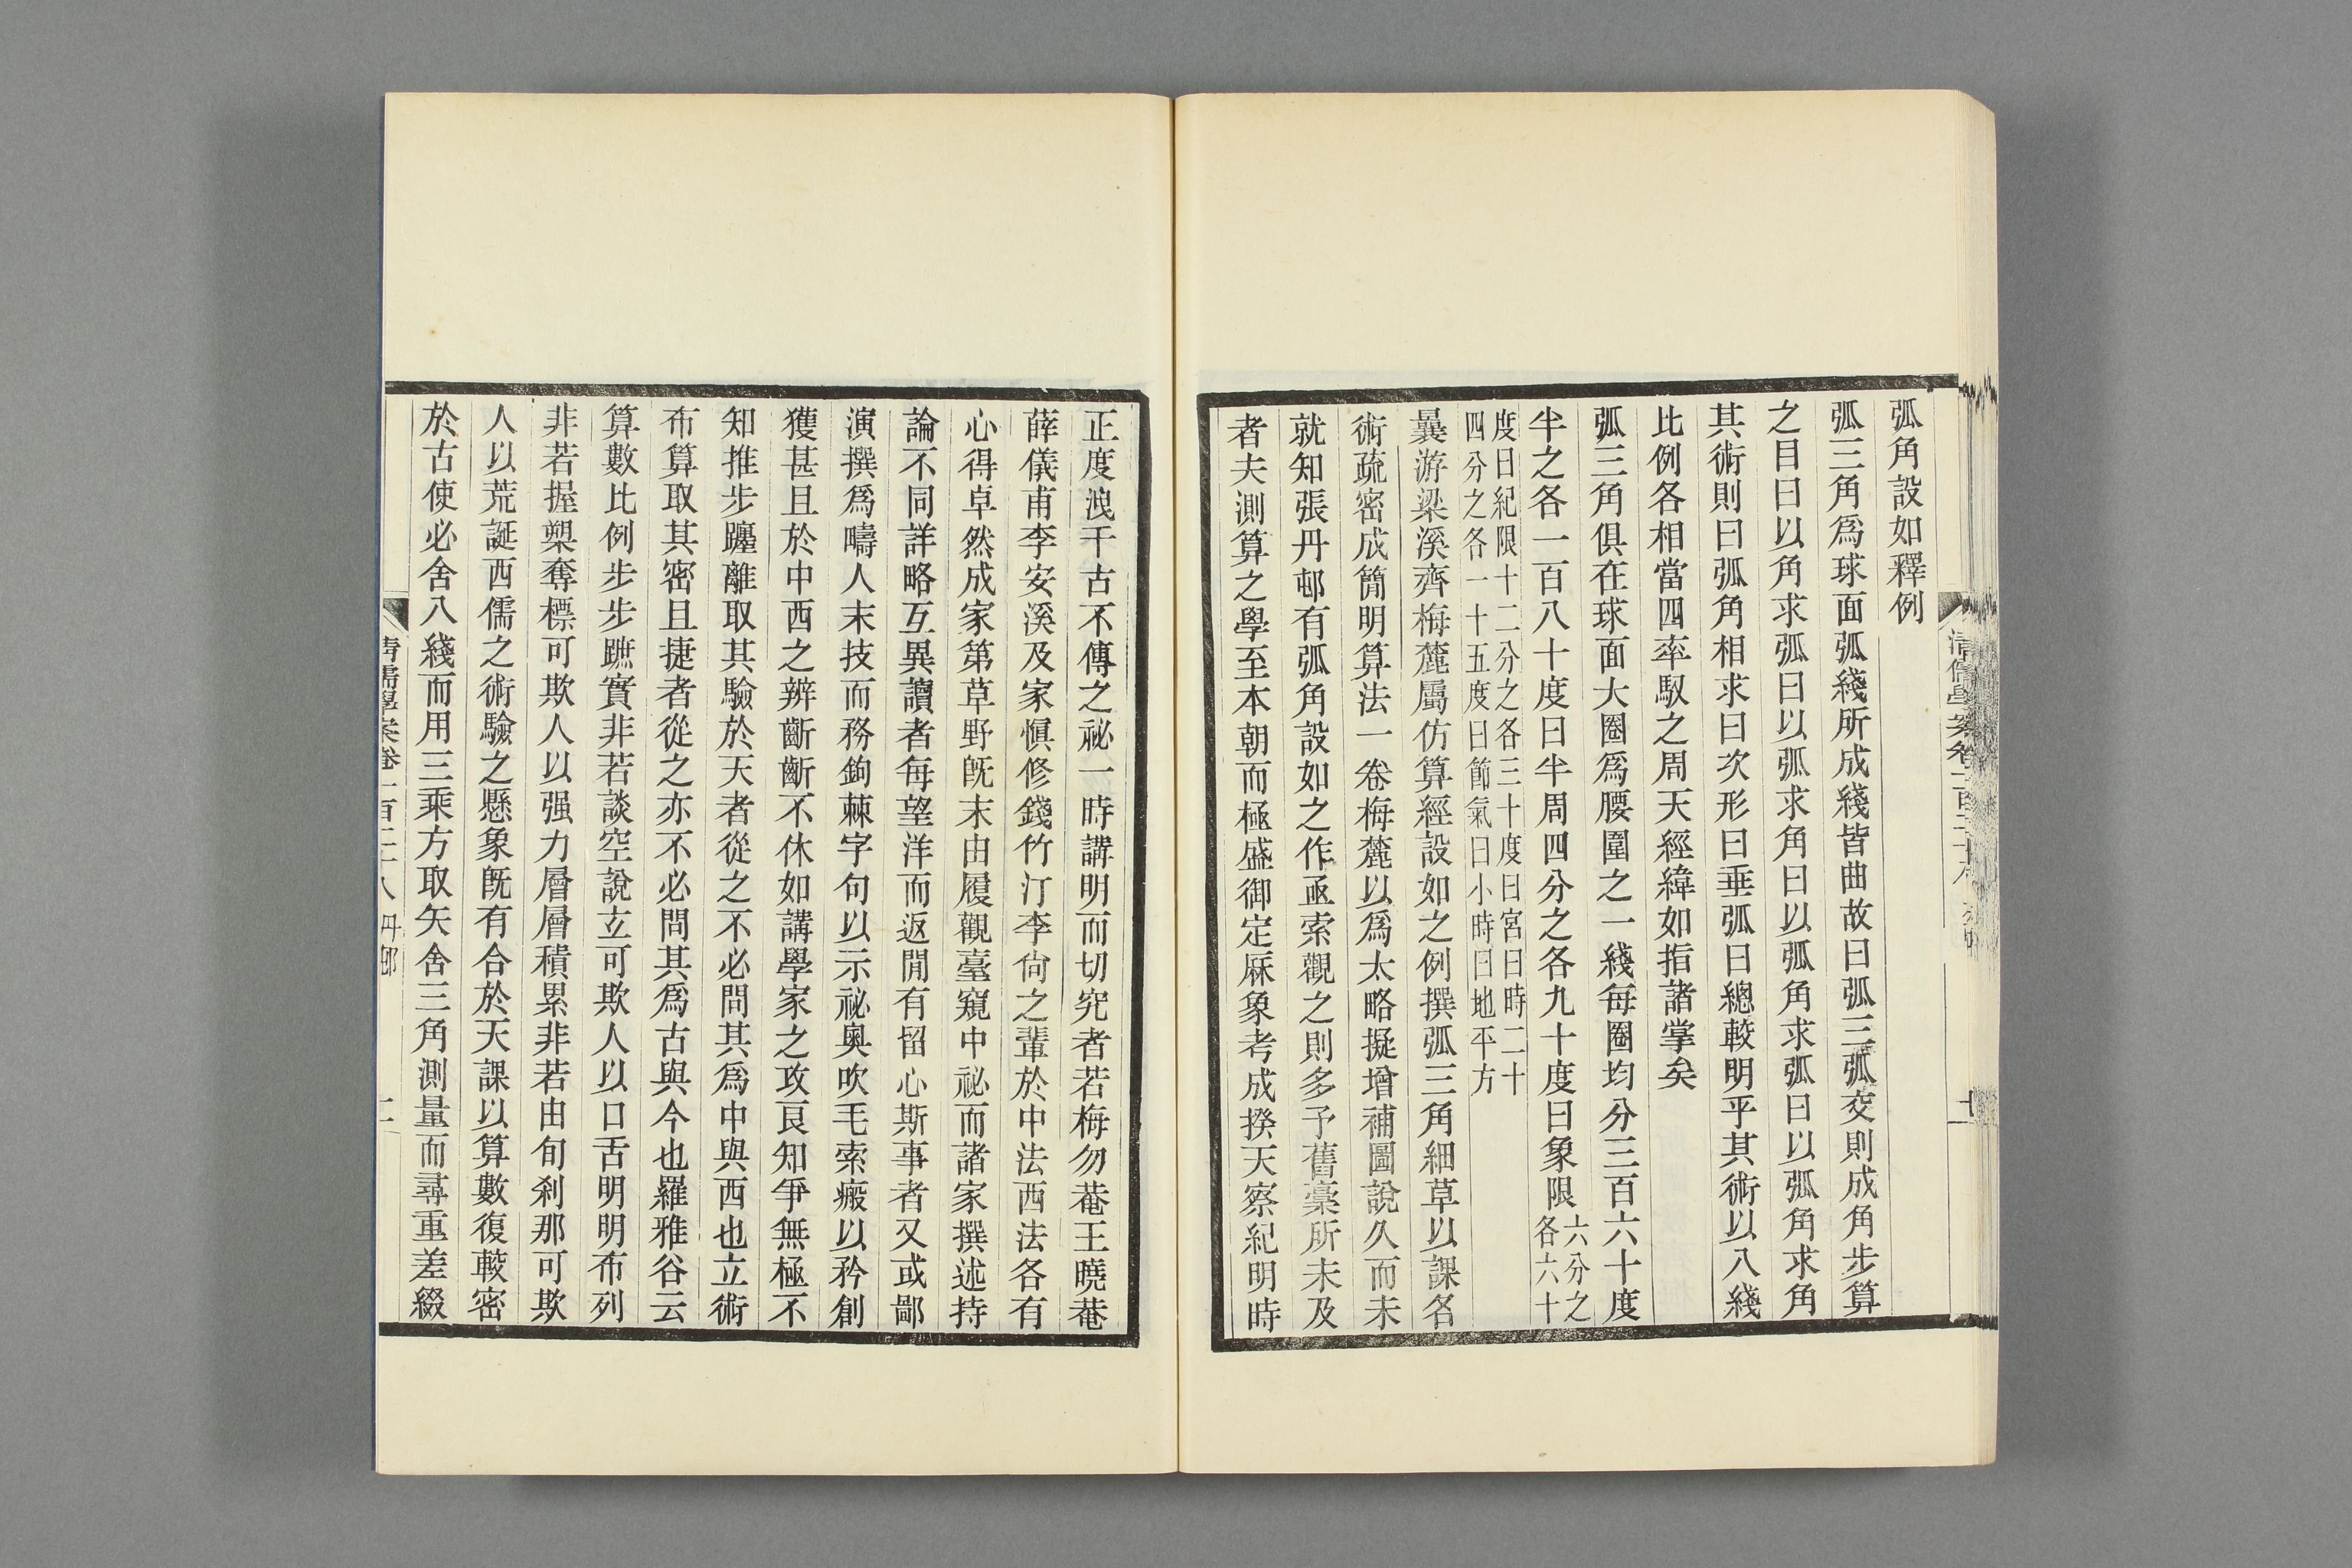 弧角設如釋例
弧三角爲球面弧綫所成綫皆曲故曰弧三弧交則成角步算
之目曰以角求弧曰以弧求角曰以弧角求弧曰以弧角求角
其術則曰弧角相求曰次形曰垂弧曰總較明乎其術以八綫
比例各相當四率馭之周天經緯如指諸掌矣
弧三角俱在球面大圈爲腰圍之一綫每圈均分三百六十度
半之各一百八十度曰半周四分之各九十度曰象限六分之各六十
度曰紀限十二分之各三十度曰宮曰時二十
四分之各一十五度曰節氣曰小時曰地平方
曩游梁溪齊梅麓屬仿算經設如之例撰弧三角細草以課名
術疏密成簡明算法一卷梅麓以爲太略擬增補圖說久而未
就知張丹邨有弧角設如之作亟索觀之則多予舊藁所未及
者夫測算之學至本朝而極盛御定厤象考成揆天察紀明時
正度洩千古不傳之祕一時講明而切究者若梅勿菴王曉菴
薛儀甫李安溪及家愼修錢竹汀李尙之輩於中法西法各有
心得卓然成家第草野旣末由履觀臺窺中祕而諸家撰述持
論不同詳略互異讀者每望洋而返閒有留心斯事者又或鄙
演撰爲疇人末技而務鉤棘字句以示祕奥吹毛索瘢以矜創
獲甚且於中西之辨齗齗不休如講學家之攻良知爭無極不
知推步躔離取其驗於天者從之不必問其爲中與西也立術
布算取其密且捷者從之亦不必問其爲古與今也羅雅谷云
算數比例步步蹠實非若談空說立可欺人以口舌明明布列
非若握槊奪標可欺人以强力層層積累非若由旬刹那可欺
人以荒誕西儒之術驗之懸象旣有合於天課以算數復較密
於古使必舍八綫而用三乘方取矢舍三角測量而尋重差綴
清儒學案卷一百二十八 丹邨 二